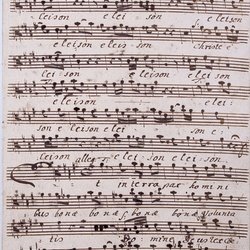 leison elei: son eleison
eleison eleis: son Christe e
lei: son eleison elei: son
elei: son elei:
son eleison elei: son e:
leison allegro elei: son
t in terra pax homini
bus bonæ bonæ bonæ volunta
tis Domine Deus